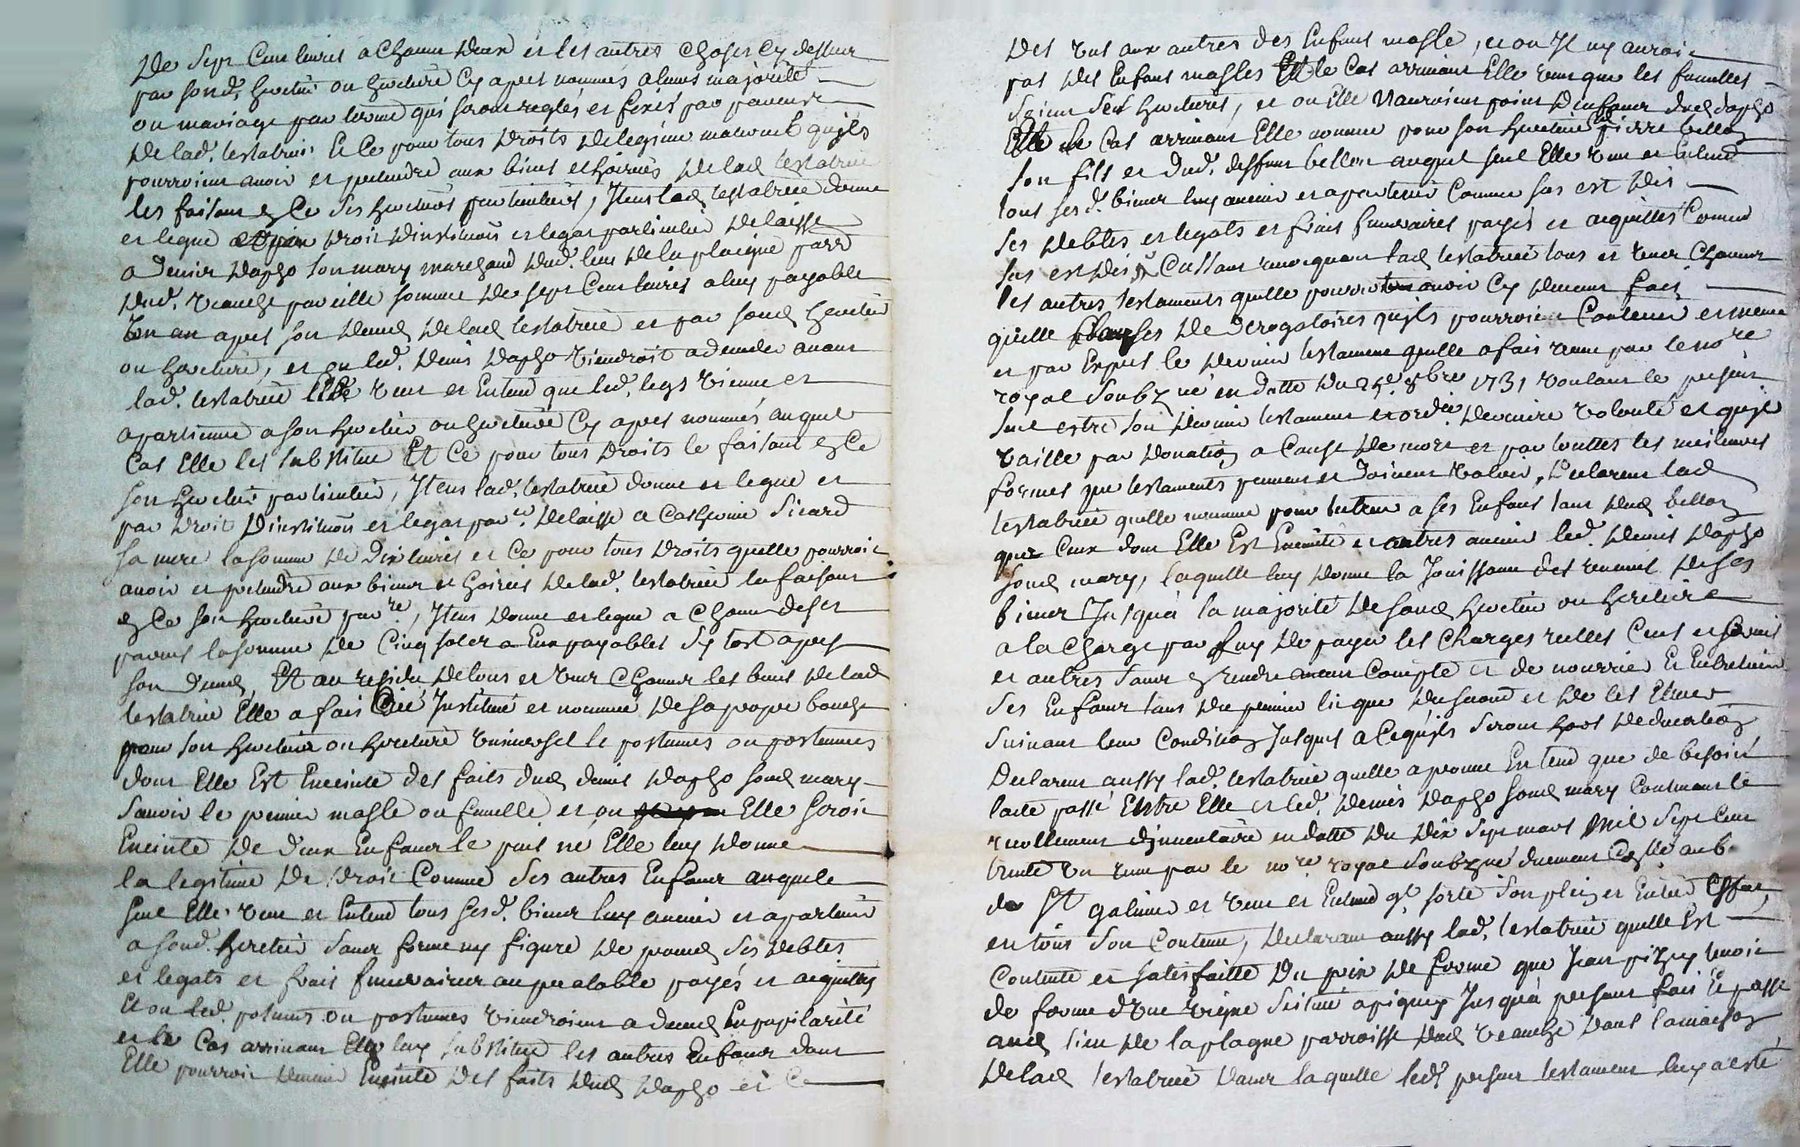 De Sept Cent livres a Chacun Deux et les autres choses Cy dessus
par sond. heretier ou heretiere Cy apres nommés a leurs majorité
ou mariage par terme qui seront reglés et fixés par parents
De lad. testatrice Et Ce pour tous Droits De legitime maternel quils
pourroient avoir et pretendre aux biens et hoiries De lad testatrice
les faisant en Ce ses heretiers particuliers, Item lad testatrice donne
et legue et par Droit Dinstitution et legat particulier Delaisse
a Denis Dapzo son mary marchand Dud. lieu De la plaigne parr
Dud. Veauche pareille somme De sept Cent livres a luy payable
Un an apres son Deced De lad testatrice et par sond heretier
ou heretiere, et ou led. Denis Dapzo Viendroit a deceder avant
lad. testatrice Elle veut et Entend que led. legs Vienne et
apartienne a son heretier ou heretiere Cy apres nommés auquel
Cas Elle les substitue Et Ce pour tous Droits le faisant en Ce
son heretier particulier, Item lad. testatrice donne et legue et
par Droit Dinstitution et legat par.er Delaisse a Catherine Sicard
sa mere la somme De Dix livres et Ce pour tous Droits quelle pourroit
avoir et pretendre aux biens et hoiries De lad. testatrice la faisant
en Ce son heretiere par.re, Item donne et legue a Chacun de ses
parents la somme De Cinq soles a Eux payables Sy tost apres
son Deced, Et au residu De tous et Uns Chacuns les biens De lad
testatrice Elle a fait Crée Institué et nommé De sa propre bouche
pour son heretier ou heretiere universel le postumes ou postumes
dont Elle Est Enceinte des faits dud denis Dapzo sond mary
Savoir le premier masle ou femelle et ou Elle seroit
Enceinte De deux Enfants le puis né Elle luy Donne
la legitime De Droit Comme Ses autres Enfants auquel
seul Elle veut et Entend tous sesd. biens luy avenir et apartenir
a sond. heretier sans forme ny figure De proced Ses Debtes
et legats et frais funerairer au prealable payés et aquittes
Et ou led. postumes ou postumes viendroient a deced En pupilarité
et le Cas arrivant Elle luy substitue les autres Enfants dont
Elle pourroit Devenir Enceinte Des faits Dud Dapzo et Ce
Des uns aux autres des Enfans masle, et ou Il ny auroit
pas Des Enfans masles Et le Cas arrivant Elle veut que les femelles
Soient Ses heretieres, et ou Elle Nauroient point Denfans dud dapzo
Et le Cas arrivant Elle nomme pour son heretier pierre bellon
son fils et Dud. deffunt bellon auquel seul Elle veut et Entend
tous sesd. biens luy avenir et apartenir Comme sus est Dis
Ses Debtes et legats et frais funeraires payés et aquittés Comme
sus est Dis, Cassant revoquant lad testatrice tous et Uns Chacuns
les autres testaments quelle pourroit avoir Cy Devant fait
quelle Clauses De Derogatoires quils pourroient Contenir et meme
et par Expres le Dernier testament quelle a fait reçue par le nore
royal Soubzné en datte Du 25e 8bre 1731 voulant le present
seul estre son Dernier testament et ordre Derniere volonté et quil
vaille par Donation a Cause De mort et par touttes les meilleures
formes que testaments peuvent et Doivent Valoir, Declarent lad
testatrice quelle nomme pour tuteur a ses Enfans tant dud bellon
que Ceux dont Elle Est Enceinte et autres avenir led. Denis Dapzo
sond mary, laquelle luy Donne la Jouissance des revenus De ses
biens Jusqua la majorité De sond heretier ou heretiere
a la Charge par luy De payer les Charges reelles Cens et servis
et autres sans En rendre aucun Compte et de nourrir Et Entretenir
Ses Enfans tans Du premier lit que Du second et De les Elever
Suivant leur Condition Jusques a Cequils Seront hors Deducation
Declarent aussy lad. testatrice quelle aprouve Entend que de besoin
lacte passé Entre Elle et led. Denis Dapzo sond mary Contenant le
recollement Dinventaire en datte Du Dix Sept mars Mil Sept Cent
trente Un reçue par le nore royal Soubzné duement Collé au b.
de St galmier et veut et Entend ql sorte Son plein et Entier Effait,
en tous Son Contenu, Declarant aussy lad. testatrice quelle Est
Contente et satisfaitte Du prix De ferme que Jean pizey tenoit
de ferme dUne vigne Scitué apiquey Jusqua present fait Et passé
aud lieu De la plagne parroisse Dud Veauche Dans la maison
De lad testatrice Dans laquelle led. present testament luy a esté